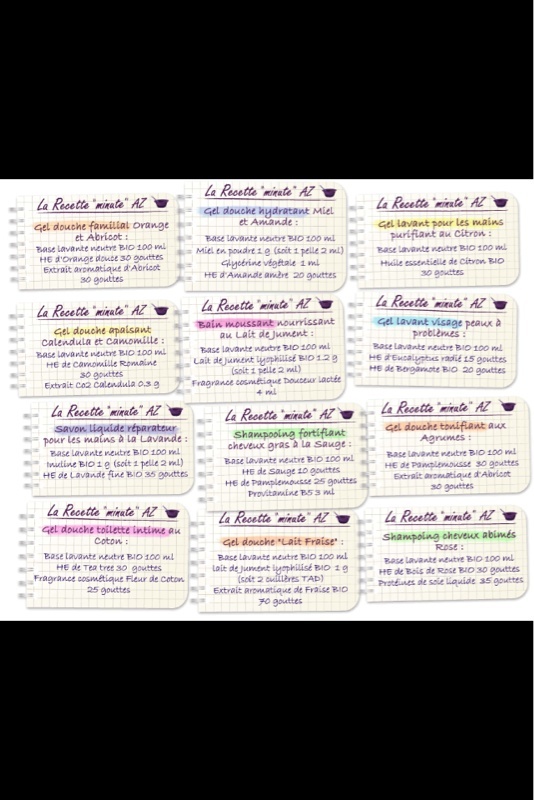 La Recette "minute" AZ
Gel douche familial Orange
et Abricot :
Base lavante neutre BIO 100 ml
HE d'Orange douce 30 gouttes
Extrait aromatique d'Abricot
30 gouttes
La Recette "minute" AZ
Gel douche hydratant Miel
et Amande :
Base lavante neutre BIO 100 ml
Miel en poudre 1 g (soit 1 pelle 2 ml)
Glycérine végétale 1 ml
HE d'Amande amère 20 gouttes
La Recette "minute" AZ
Gel lavant pour les mains
purifiant au Citron :
Base lavante neutre BIO 100 ml
Huile essentielle de Citron BIO
30 gouttes
La Recette "minute" AZ
Gel douche apaisant
Calendula et Camomille :
Base lavante neutre BIO 100 ml
HE de Camomille Romaine
30 gouttes
Extrait Co2 Calendula 0.3 g
La Recette "minute" AZ
Bain moussant nourrissant
au Lait de Jument :
Base lavante neutre BIO 100 ml
Lait de Jument lyophilisé BIO 1.2 g
(soit 1 pelle 2 ml)
Fragrance cosmétique Douceur lactée
4 ml
La Recette "minute" AZ
Gel lavant visage peaux à
problèmes :
Base lavante neutre BIO 100 ml
HE d'Eucalyptus radié 15 gouttes
HE de Bergamote BIO 20 gouttes
La Recette "minute" AZ
Savon liquide réparateur
pour les mains à la Lavande :
Base lavante neutre BIO 100 ml
Inuline BIO 1 g (soit 1 pelle 2 ml)
HE de Lavande fine BIO 35 gouttes
La Recette "minute" AZ
Shampooing fortifiant
cheveux gras à la Sauge :
Base lavante neutre BIO 100 ml
HE de Sauge 10 gouttes
HE de Pamplemousse 25 gouttes
Provitamine B5 3 ml
La Recette "minute" AZ
Gel douche tonifiant aux
Agrumes :
Base lavante neutre BIO 100 ml
HE de Pamplemousse 30 gouttes
Extrait aromatique d'Abricot
30 gouttes
La Recette "minute" AZ
Gel douche toilette intime au
Coton :
Base lavante neutre BIO 100 ml
HE de Tea tree 30 gouttes
Fragrance cosmétique Fleur de Coton
25 gouttes
La Recette "minute" AZ
Gel douche "Lait Fraise" :
Base lavante neutre BIO 100 ml
lait de Jument lyophilisé BIO 1 g
(soit 2 cuillères TAD)
Extrait aromatique de Fraise BIO
70 gouttes
La Recette "minute" AZ
Shampooing cheveux abimés
Rose :
Base lavante neutre BIO 100 ml
HE de Bois de Rose BIO 30 gouttes
Protéines de soie liquide 35 gouttes